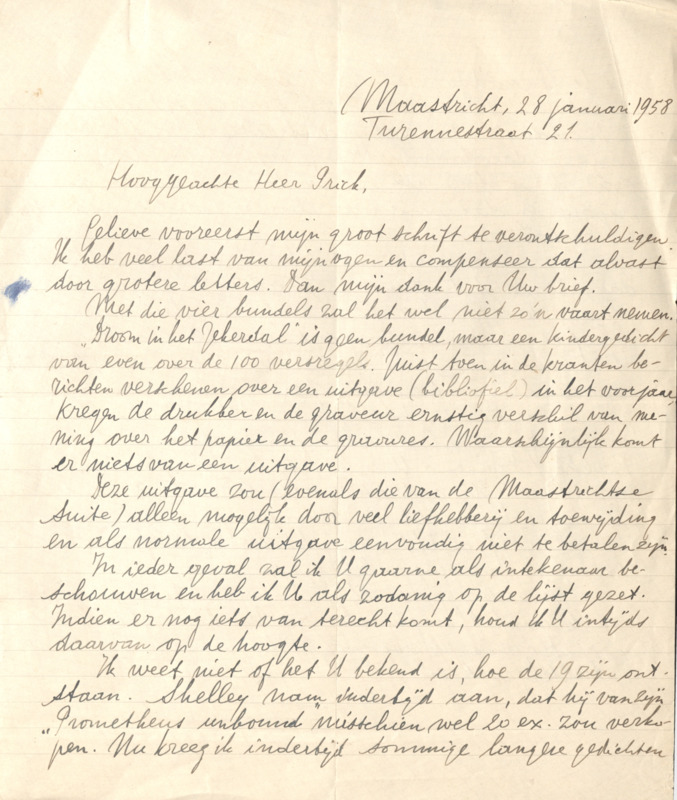 Maastricht, 28 januari 1958
Turennestraat 21.
Hooggeachte Heer Prick,
Gelieve vooreerst mijn groot schrift te verontschuldigen.
Ik heb veel last van mijn ogen en compenseer dat alvast
door grotere letters. Dan mijn dank voor Uw brief.
Met die vier bundels zal het wel niet zó'n vaart nemen.
"Droom in het Jekerdal" is geen bundel, maar een kindergedicht
van even over de 100 versregels. Juist toen in de kranten be-
richten verschenen over een uitgave (bibliofiel) in het voorjaar,
kregen de drukker en de graveur ernstig verschil van me-
ning over het papier en de gravures. Waarschijnlijk komt
er niets van een uitgave.
Deze uitgave zou (evenals die van de Maastrichtse
Suite) alleen mogelijk door veel liefhebberij en toewijding
en als normale uitgave eenvoudig niet te betalen zijn.
In ieder geval zal ik U gaarne als intekenaar be-
schouwen en heb ik U als zodanig op de lijst gezet.
Indien er nog iets van terecht komt, houd ik U intijds
daarvan op de hoogte.
Ik weet niet of het U bekend is, hoe de 19 zijn ont-
staan. Shelley nam indertijd aan, dat hij van zijn
"Prometheus unbound" misschien wel 20 ex. zou verko-
pen. Nu kreeg ik indertijd sommige langere gedichten